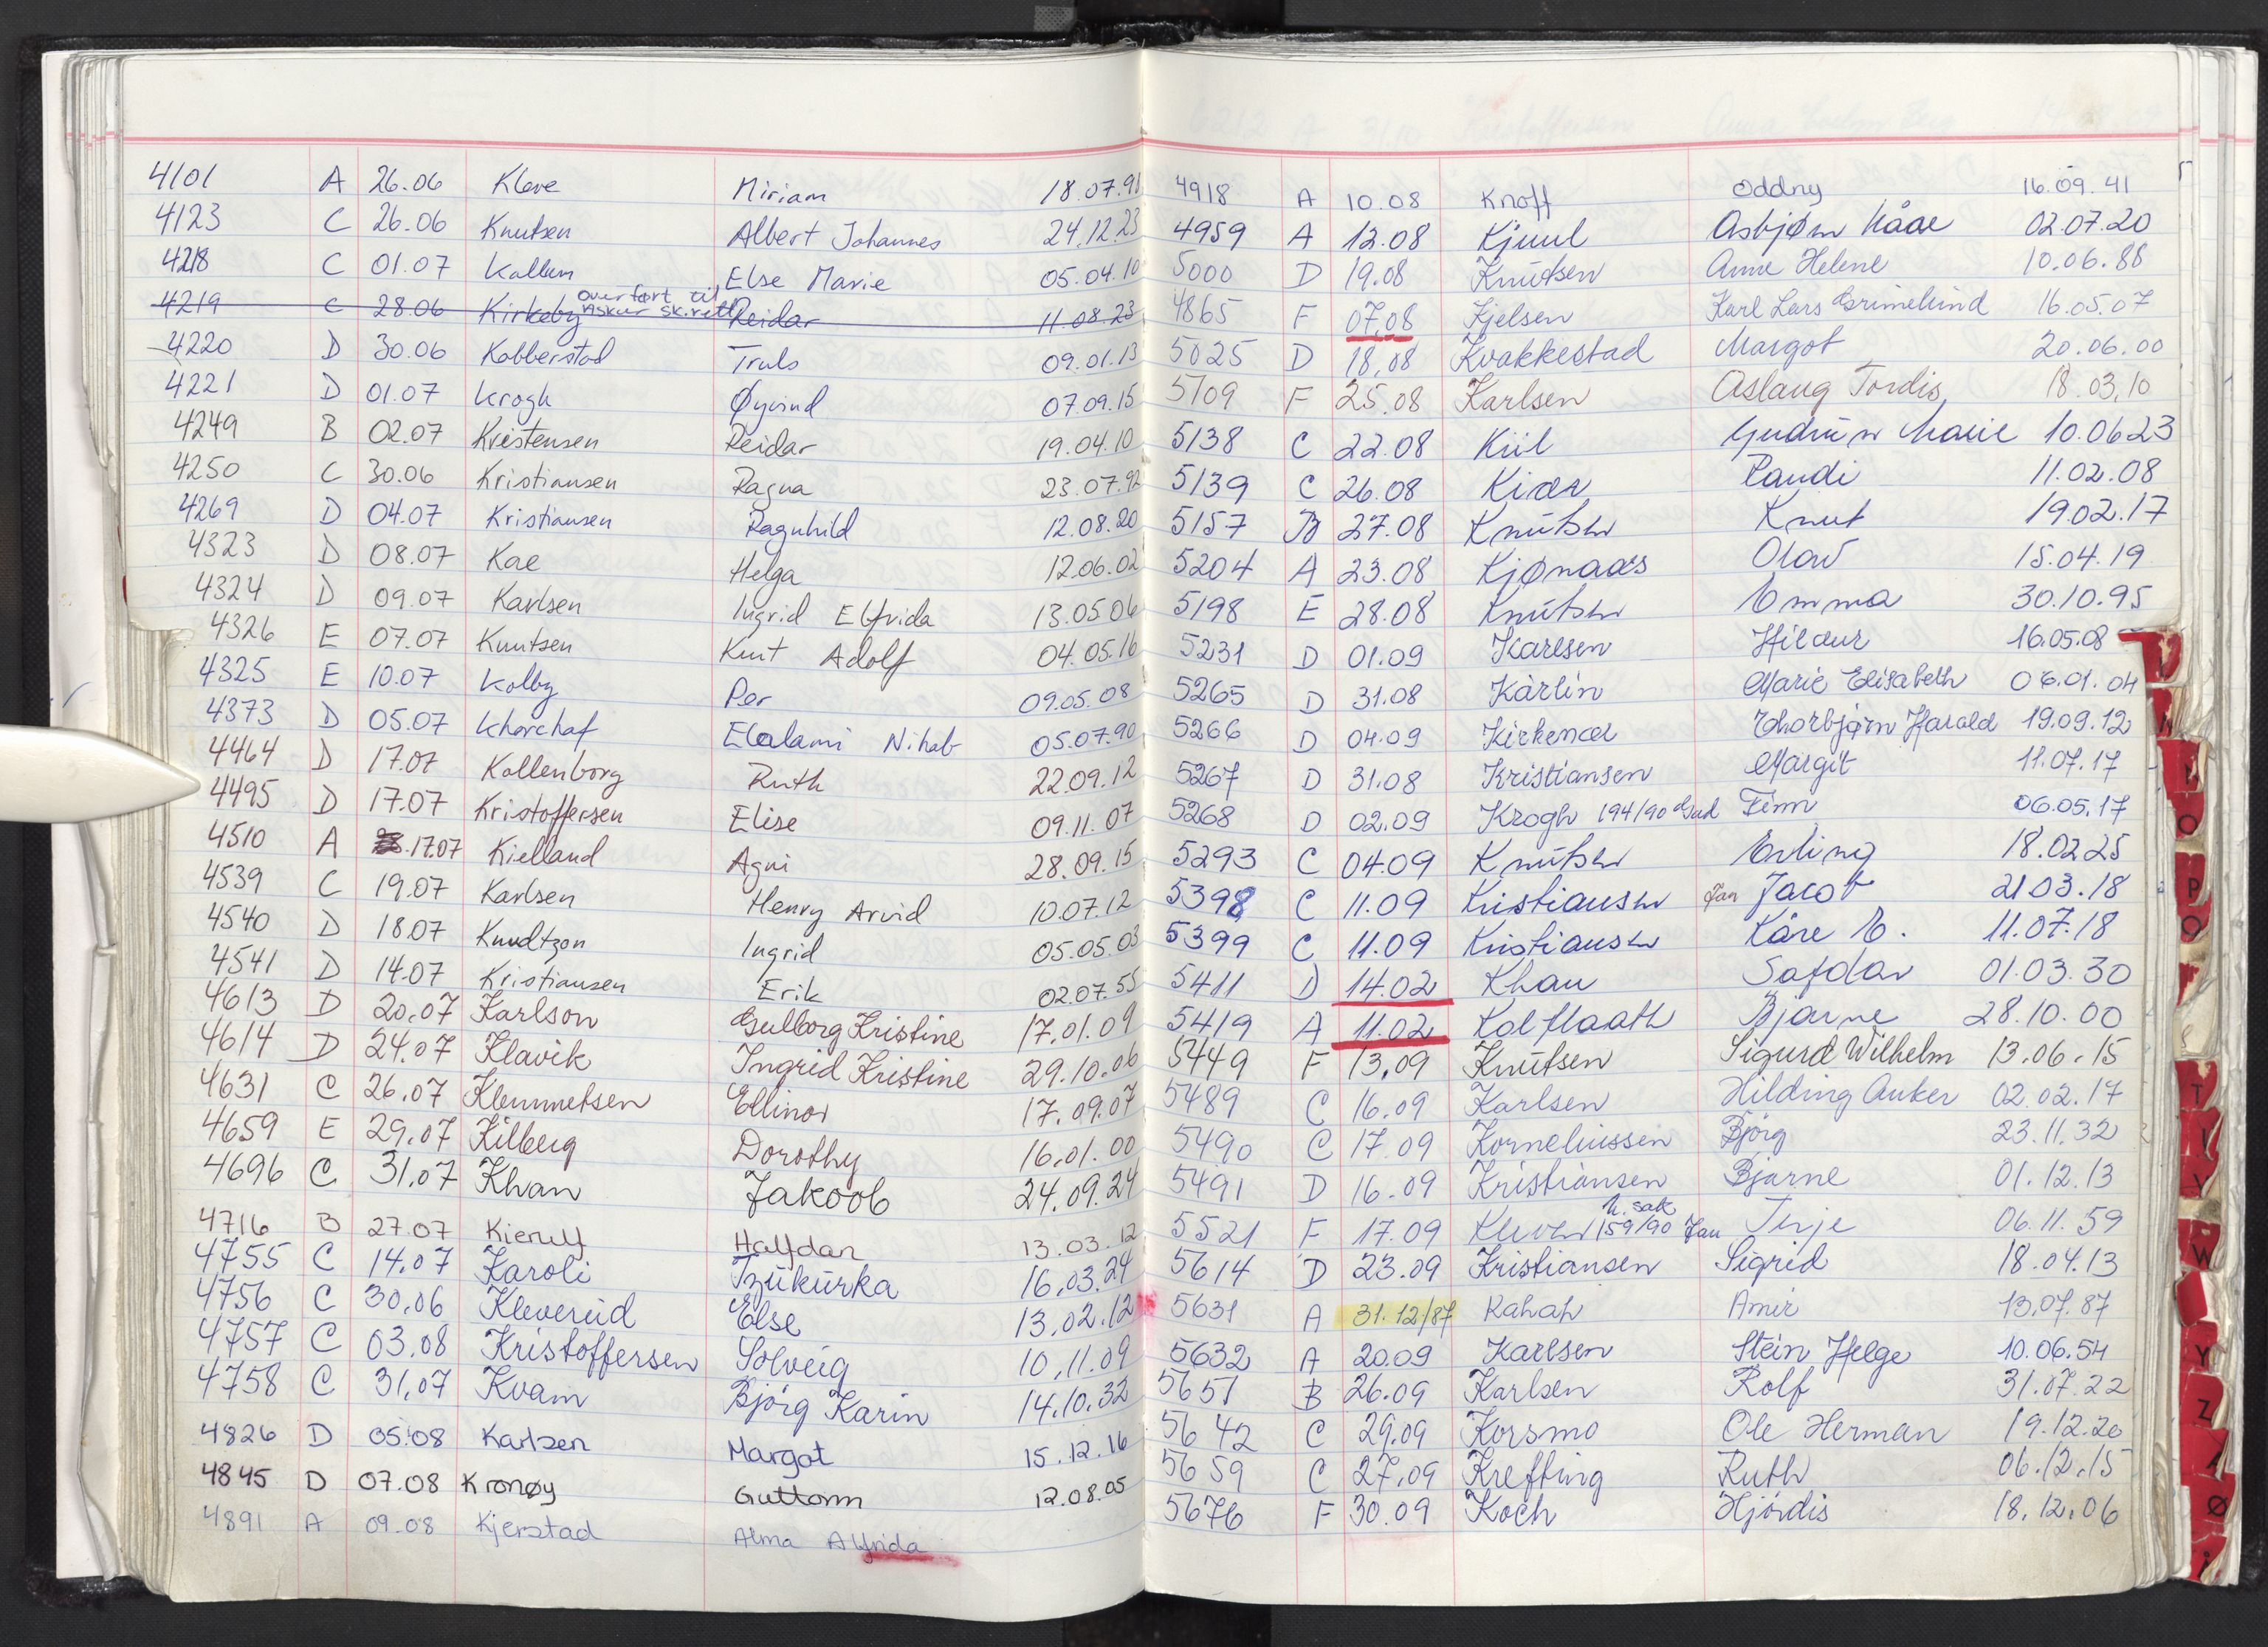 4101 A 26.06 Kleve Miriam 18.07.91
4123 C 26.06 Knutsen Albert Johannes 24.12.23
4218 C 01.07 Kallum Else Marie 05.04.10
4219 C 28.06 Kirkeby overført til Asker sk.rett Reidar 11.08.23
4220 D 30.06 Kobberstad Truls 09.01.13
4221 D 01.07 Krogh Øyvind 07.09.15
4249 B 02.07 Kristensen Reidar 19.04.10
4250 C 30.06 Kristiansen Ragna 23.07.92
4269 D 04.07 Kristiansen Ragnhild 12.08.20
4323 D 08.07 Kae Helga 12.06.02
4324 D 09.07 Karlsen Ingrid Elfrida 13.05.06
4326 E 07.07 Knutsen Knut Adolf 04.05.16
4325 E 10.07 Kolby Per 09.05.08
4373 D 05.07 Khorchaf Elalami Nihab 05.07.90
4464 D 17.07 Kollenborg Ruth 22.09.12
4495 D 17.07 Kristoffersen Elise 09.11.07
4510 A 17.07 Kielland Agni 28.09.15
4539 C 19.07 Karlsen Henry Arvid 10.07.12
4540 D 18.07 Knudtzon Ingrid 05.05.03
4541 D 14.07 Kristiansen Erik 02.07.55
4613 D 20.07 Karlson Gulborg Kristine 17.01.09
4614 D 24.07 Klavik Ingrid Kristine 29.10.06
4631 C 26.07 Klemmetsen Ellinor 17.09.07
4659 E 29.07 Kilberg Dorothy 16.01.00
4696 C 31.07 Khan Jakoob 24.09.24
4716 B 27.07 Kierulf Halfdan 13.03.12
4755 C 14.07 Karoli Tzukurka 16.03.24
4756 C 30.06 Klevereid Else 13.02.12
4757 C 03.08 Kristoffersen Solveig 10.11.09
4758 C 31.07 Kvam Bjørg Karin 14.10.32
4826 D 05.08 Karlsen Margot 15.12.16
4845 D 07.08 Kronøy Guttorm 12.08.05
4891 A 09.08 Kjerstad Alma Alfrida
4918 A 10.08 Knoff Oddny 16.09.41
4959 A 12.08 Kjuul Asbjørn Kåre 02.07.20
5000 D 19.08 Knudsen Anne Helene 10.06.88
4865 F 07.08 Kjelsen Karl Lars Grimelund 16.05.07
5025 D 18.08 Kvakkestad Margot 20.06.00
5109 F 25.08 Karlsen Aslaug Tordis 18.03.10
5138 C 22.08 Kiil Gudrun Marie 10.06 23
5139 C 26.08 Kiær Randi 11.02.08
5157 B 27.08 Knutsen Knut 19.02.17
5204 A 23.08 Kjønaas Olav 15.04.19
5198 E 28.08 Knutsen Emma 30.10.95
5231 D 01.09 Karlsen Hildur 16.05.08
5265 D 31.08 Karlin Marie Elisabeth 06.01.04
5266 D 04.09 Kirkenær Thorbjørn Harald 19.09.12
5267 D 31.08 Kristiansen Margit 11.07.17
5268 D 02.09 Krogh 194/90 Gud Finn 06.05.17
5293 C 04.09 Knutsen Erling 18.02 25
5398 C 11.09 Kristiansen Jan Jacob 21.03.18
5399 C 11.09 Kristiansen Kåre E. 11.07.18
5411 D 14.02 Khan Safdar 01.03.30
5419 A 11.02 Kolflaath Bjarne 28.10.00
5449 F 13.09 Knutsen Sigurd Wilhelm 13.06.15
5489 C 16.09 Karlsen Hilding Anker 02.02.17
5490 C 17.09 Korneliussen Bjørg 23.11.32
5491 D 16.09 Kristiansen Bjarne 01.12.13
5521 F 17.09 Kleven h. sak 159/90 Jan Terje 06.11.59
5614 D 23.09 Kristiansen Sigrid 18.04.13
5631 A 31.12/87 Kahah Amir 13.07.87
5632 A 20.09 Karlsen Stein Helge 10.06.54
5651 B 26.09 Karlsen Rolf 31.07.22
5642 C 29.09 Korsmo Ole Herman 19.12.20
5659 C 27.09 Krefting Ruth 06.12.15
5676 F 30.09 Koch Hjørdis 18.12.06
O
P
Q
T
V
W
Y
Z
Ø